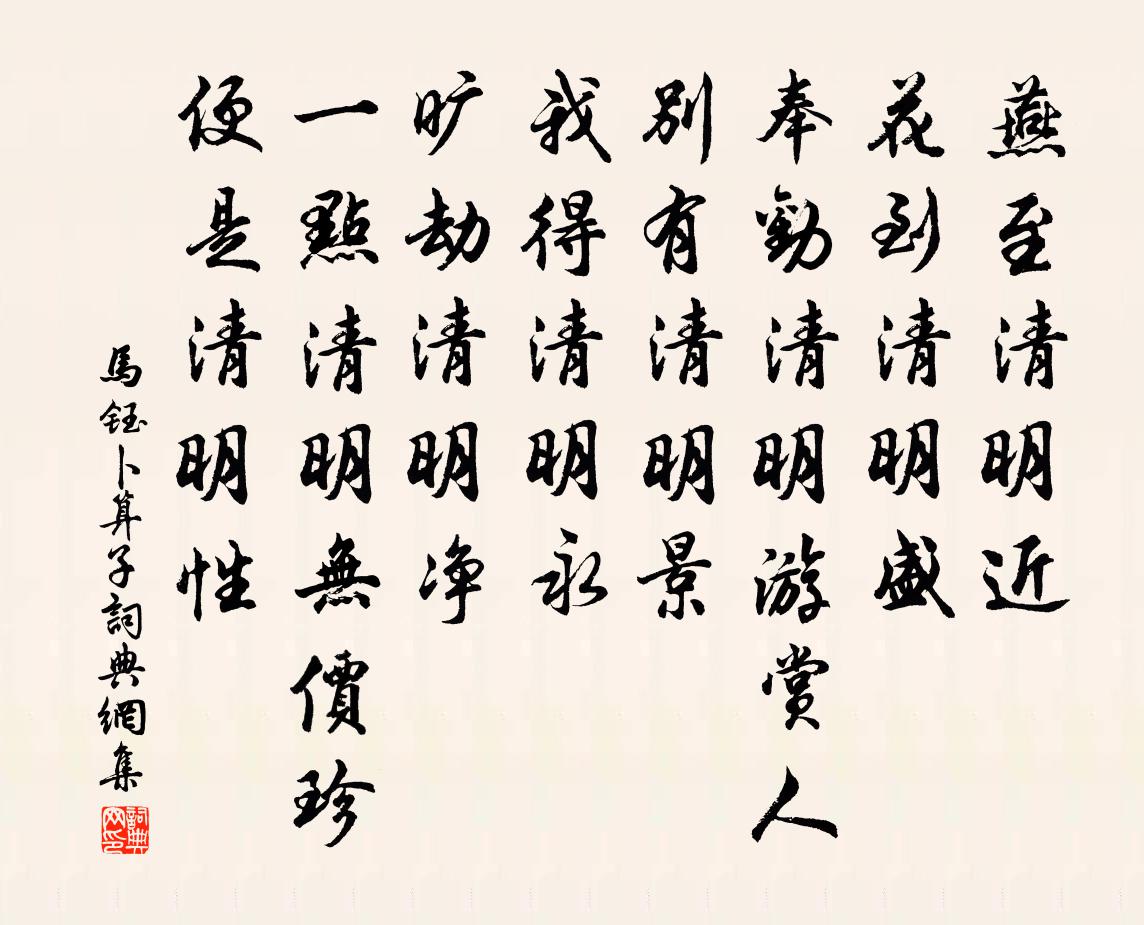 燕至清明近
花到清明盛
奉勸清明游賞人
別有清明景
我得清明永
旷劫清明净
一點清明無價珍
便是清明性
馬鈺卜算子詞典網集
詞典網印